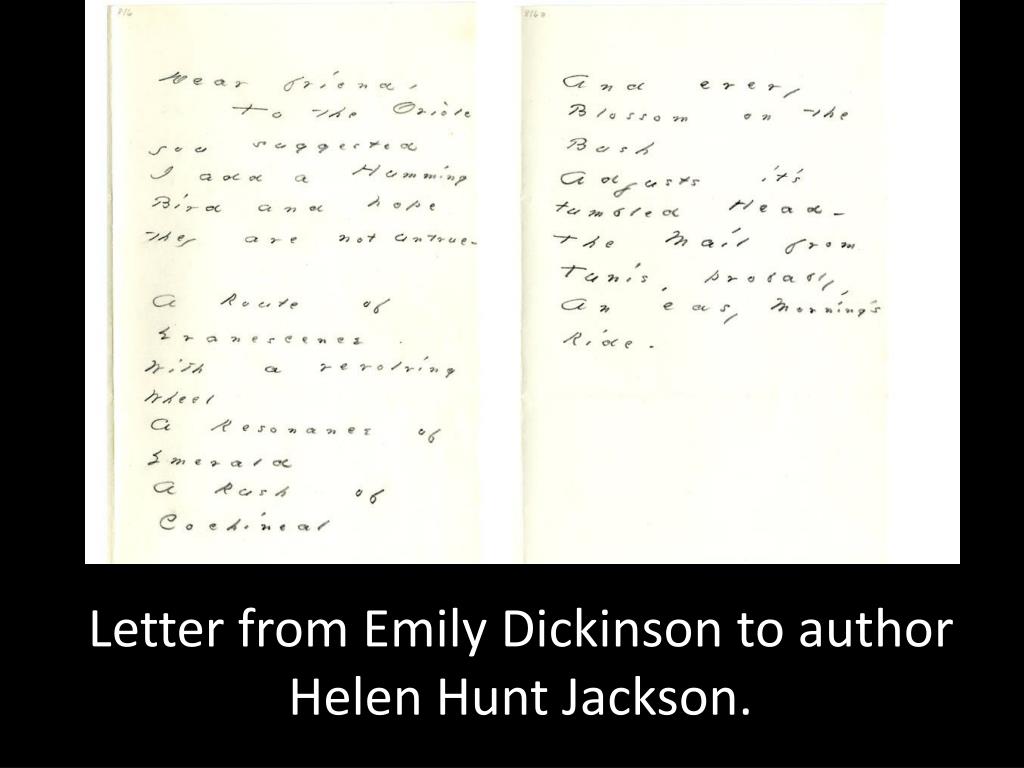 816
Dear friend,
To the Oriole
you suggested
I add a Humming
Bird and hope
they are not untrue-
A Route of
Evanescence
With a revolving
Wheel
A Resonance of
Emerald
A Rush of
Cochineal
816a
And every
Blossom on the
Bush
Adjusts it's
tumbled Head-
The Mail from
Tunis, probably,
An easy Morning's
Ride.
Letter from Emily Dickinson to author
Helen Hunt Jackson.